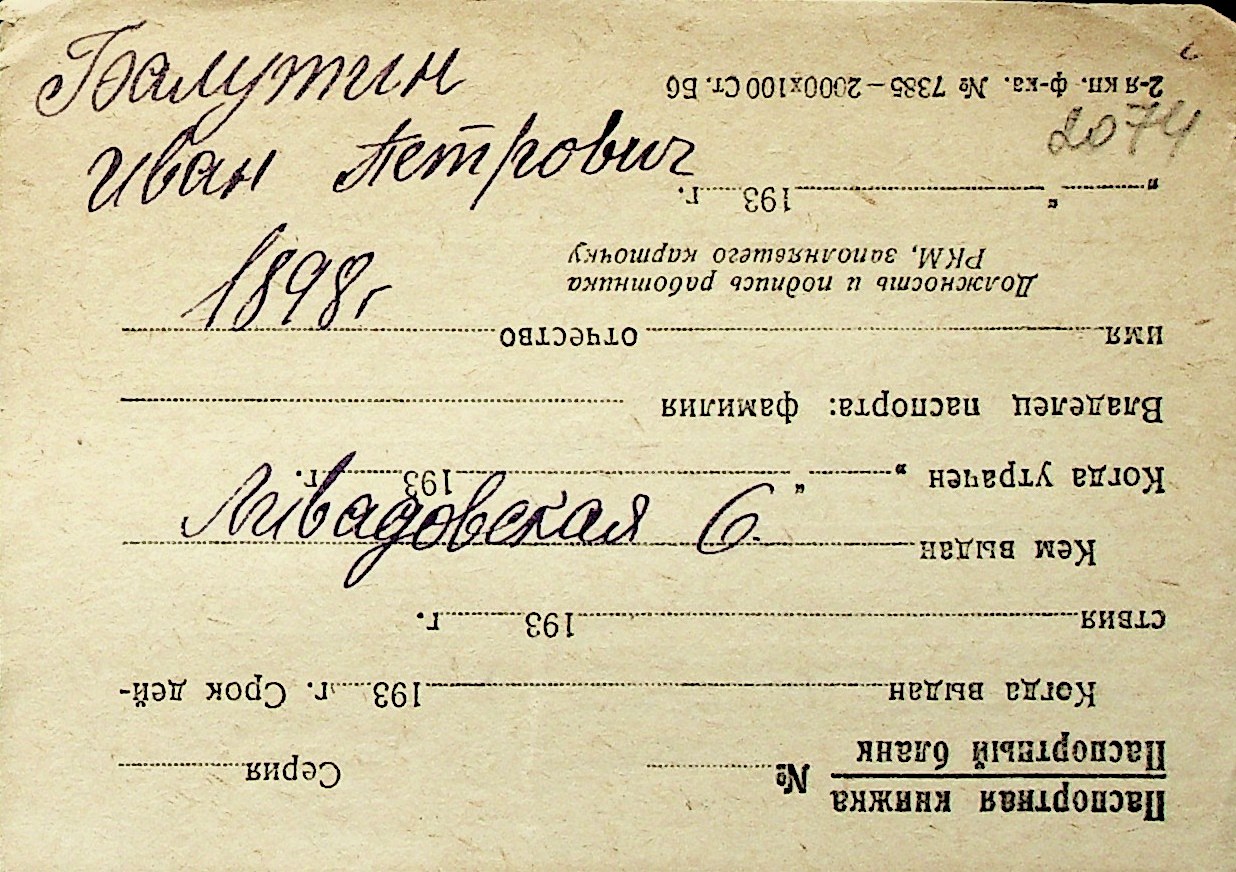 Балутин
Иван Петрович
1898 г
Ливадовская 6.
2074
Паспортная книжка
Паспортный бланк
№ Серия
Когда выдан 193 г. Срок дей-
ствия 193 г.
Кем выдан
Когда утрачен „ “ 193 г.
Владелец паспорта: фамилия
имя отчество
Должность и подпись работника
РКМ, заполнявшего карточку
„ “ 193 г.
2-я кн. ф-ка. № 7385—2000х100 Ст. Б6